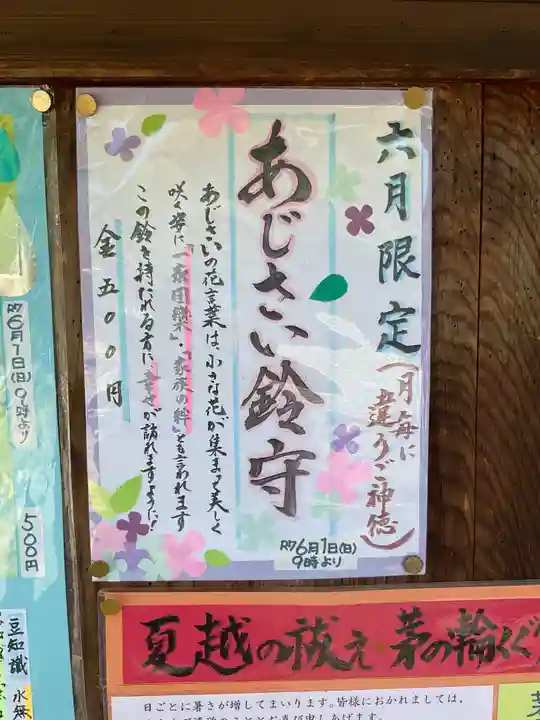 六月限定
(月毎に
違うご神徳)
あじさい鈴守
あじさいの花言葉は、小さな花が集まって美しく
咲く姿に「一家団欒」・「家族の絆」とも言われます
この鈴を持たれる方に、幸せが訪れますように!
金五〇〇円
R7 6月1日(日)
9時より
R7 6月1日(日)9時より
500円
豆知識
夏越の祓え・茅の輪くぐ
日ごとに暑さが増してまいります。皆様におかれましては、